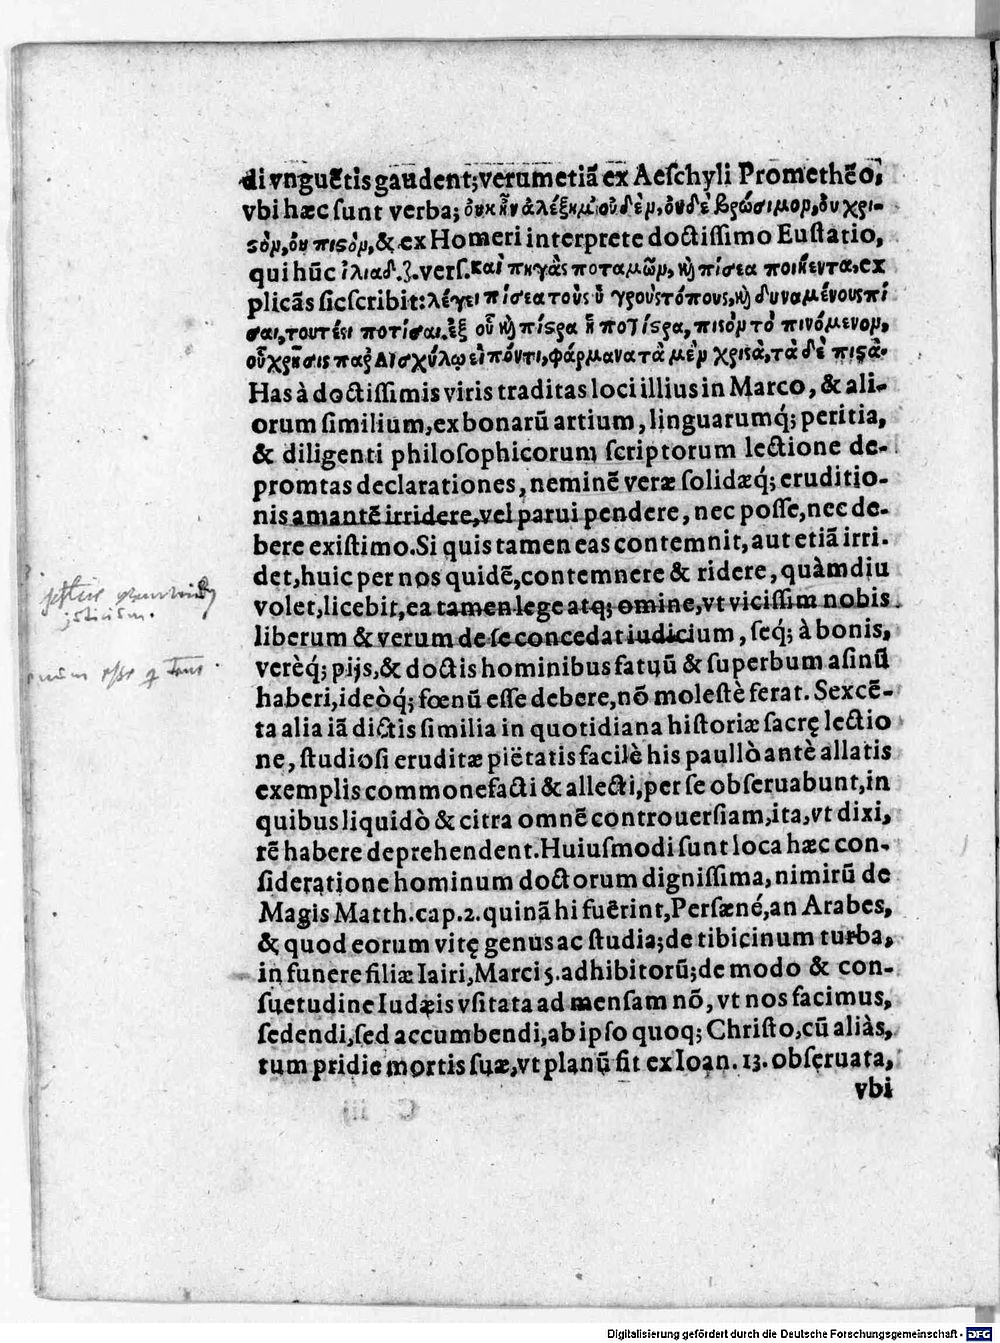 di vnguẽtis gaudent; verumetiã ex Aeſchyli Promethẽo,
vbi hæc ſunt verba; ὀυκ ἦν ἀλέξημ' οὐδὲν, ὀυδὲ βρώσιμον, ὀυ χρι-
ςὸν, ὀυ πιςὸν, & ex Homeri interprete doctiſſimo Euſtatio,
qui hũc ἰλιαδ. ζ. verſ. καὶ πηγὰς ποταμῶν, κὴ πίσεα ποιήεντα, ex
plicãs ſic ſcribit: λέγει πίσεα τοὺς
σαι, τουτέςι ποτίσαι. ἐξ οὗ κὴ πίςρα ἢ ποτίςρα, πιςὸν τὸ πινόμενον,
οὗ χρῆσις παρ' Αισχύλῳ εἰπόντι, φάρμανα τὰ μὲν χριςὰ, τὰ δὲ πιςὰ.
Has à doctiſſimis viris traditas loci illius in Marco, & ali-
orum ſimilium, ex bonarũ artium, linguarumq́; peritia,
& diligenti philoſophicorum ſcriptorum lectione de-
promtas declarationes, neminẽ veræ ſolidæq́; eruditio-
nis amantẽ irridere, vel parui pendere, nec poſſe, nec de-
bere exiſtimo. Si quis tamen eas contemnit, aut etiã irri-
det, huic per nos quidẽ, contemnere & ridere, quàmdiu
volet, licebit, ea tamen lege atq; omine, vt viciſſim nobis
liberum & verum de ſe concedat iudicium, ſeq; à bonis,
verèq́; pijs, & doctis hominibus fatuũ & ſuperbum aſinũ
haberi, ideòq́; fœnũ eſſe debere, nõ moleſtè ferat. Sexcẽ-
ta alia iã dictis ſimilia in quotidiana hiſtoriæ ſacrę lectio
ne, ſtudioſi eruditæ piëtatis facilè his paullò antè allatis
exemplis commonefacti & allecti, per ſe obſeruabunt, in
quibus liquidò & citra omnẽ controuerſiam, ita, vt dixi,
rẽ habere deprehendent. Huiuſmodi ſunt loca hæc con-
ſideratione hominum doctorum digniſſima, nimirũ de
Magis Matth. cap. 2. quinã hi fuẽrint, Perſæné, an Arabes,
& quod eorum vitę genus ac ſtudia; de tibicinum turba,
in funere filiæ Iairi, Marci 5. adhibitorũ; de modo & con-
ſuetudine Iudæis vſitata ad menſam nõ, vt nos facimus,
ſedendi, ſed accumbendi, ab ipſo quoq; Chriſto, cũ aliàs,
tum pridie mortis ſuæ, vt planũ fit ex Ioan. 13. obſeruata,
vbi
Digitalisierung gefördert durch die Deutsche Forschungsgemeinschaft - DFG